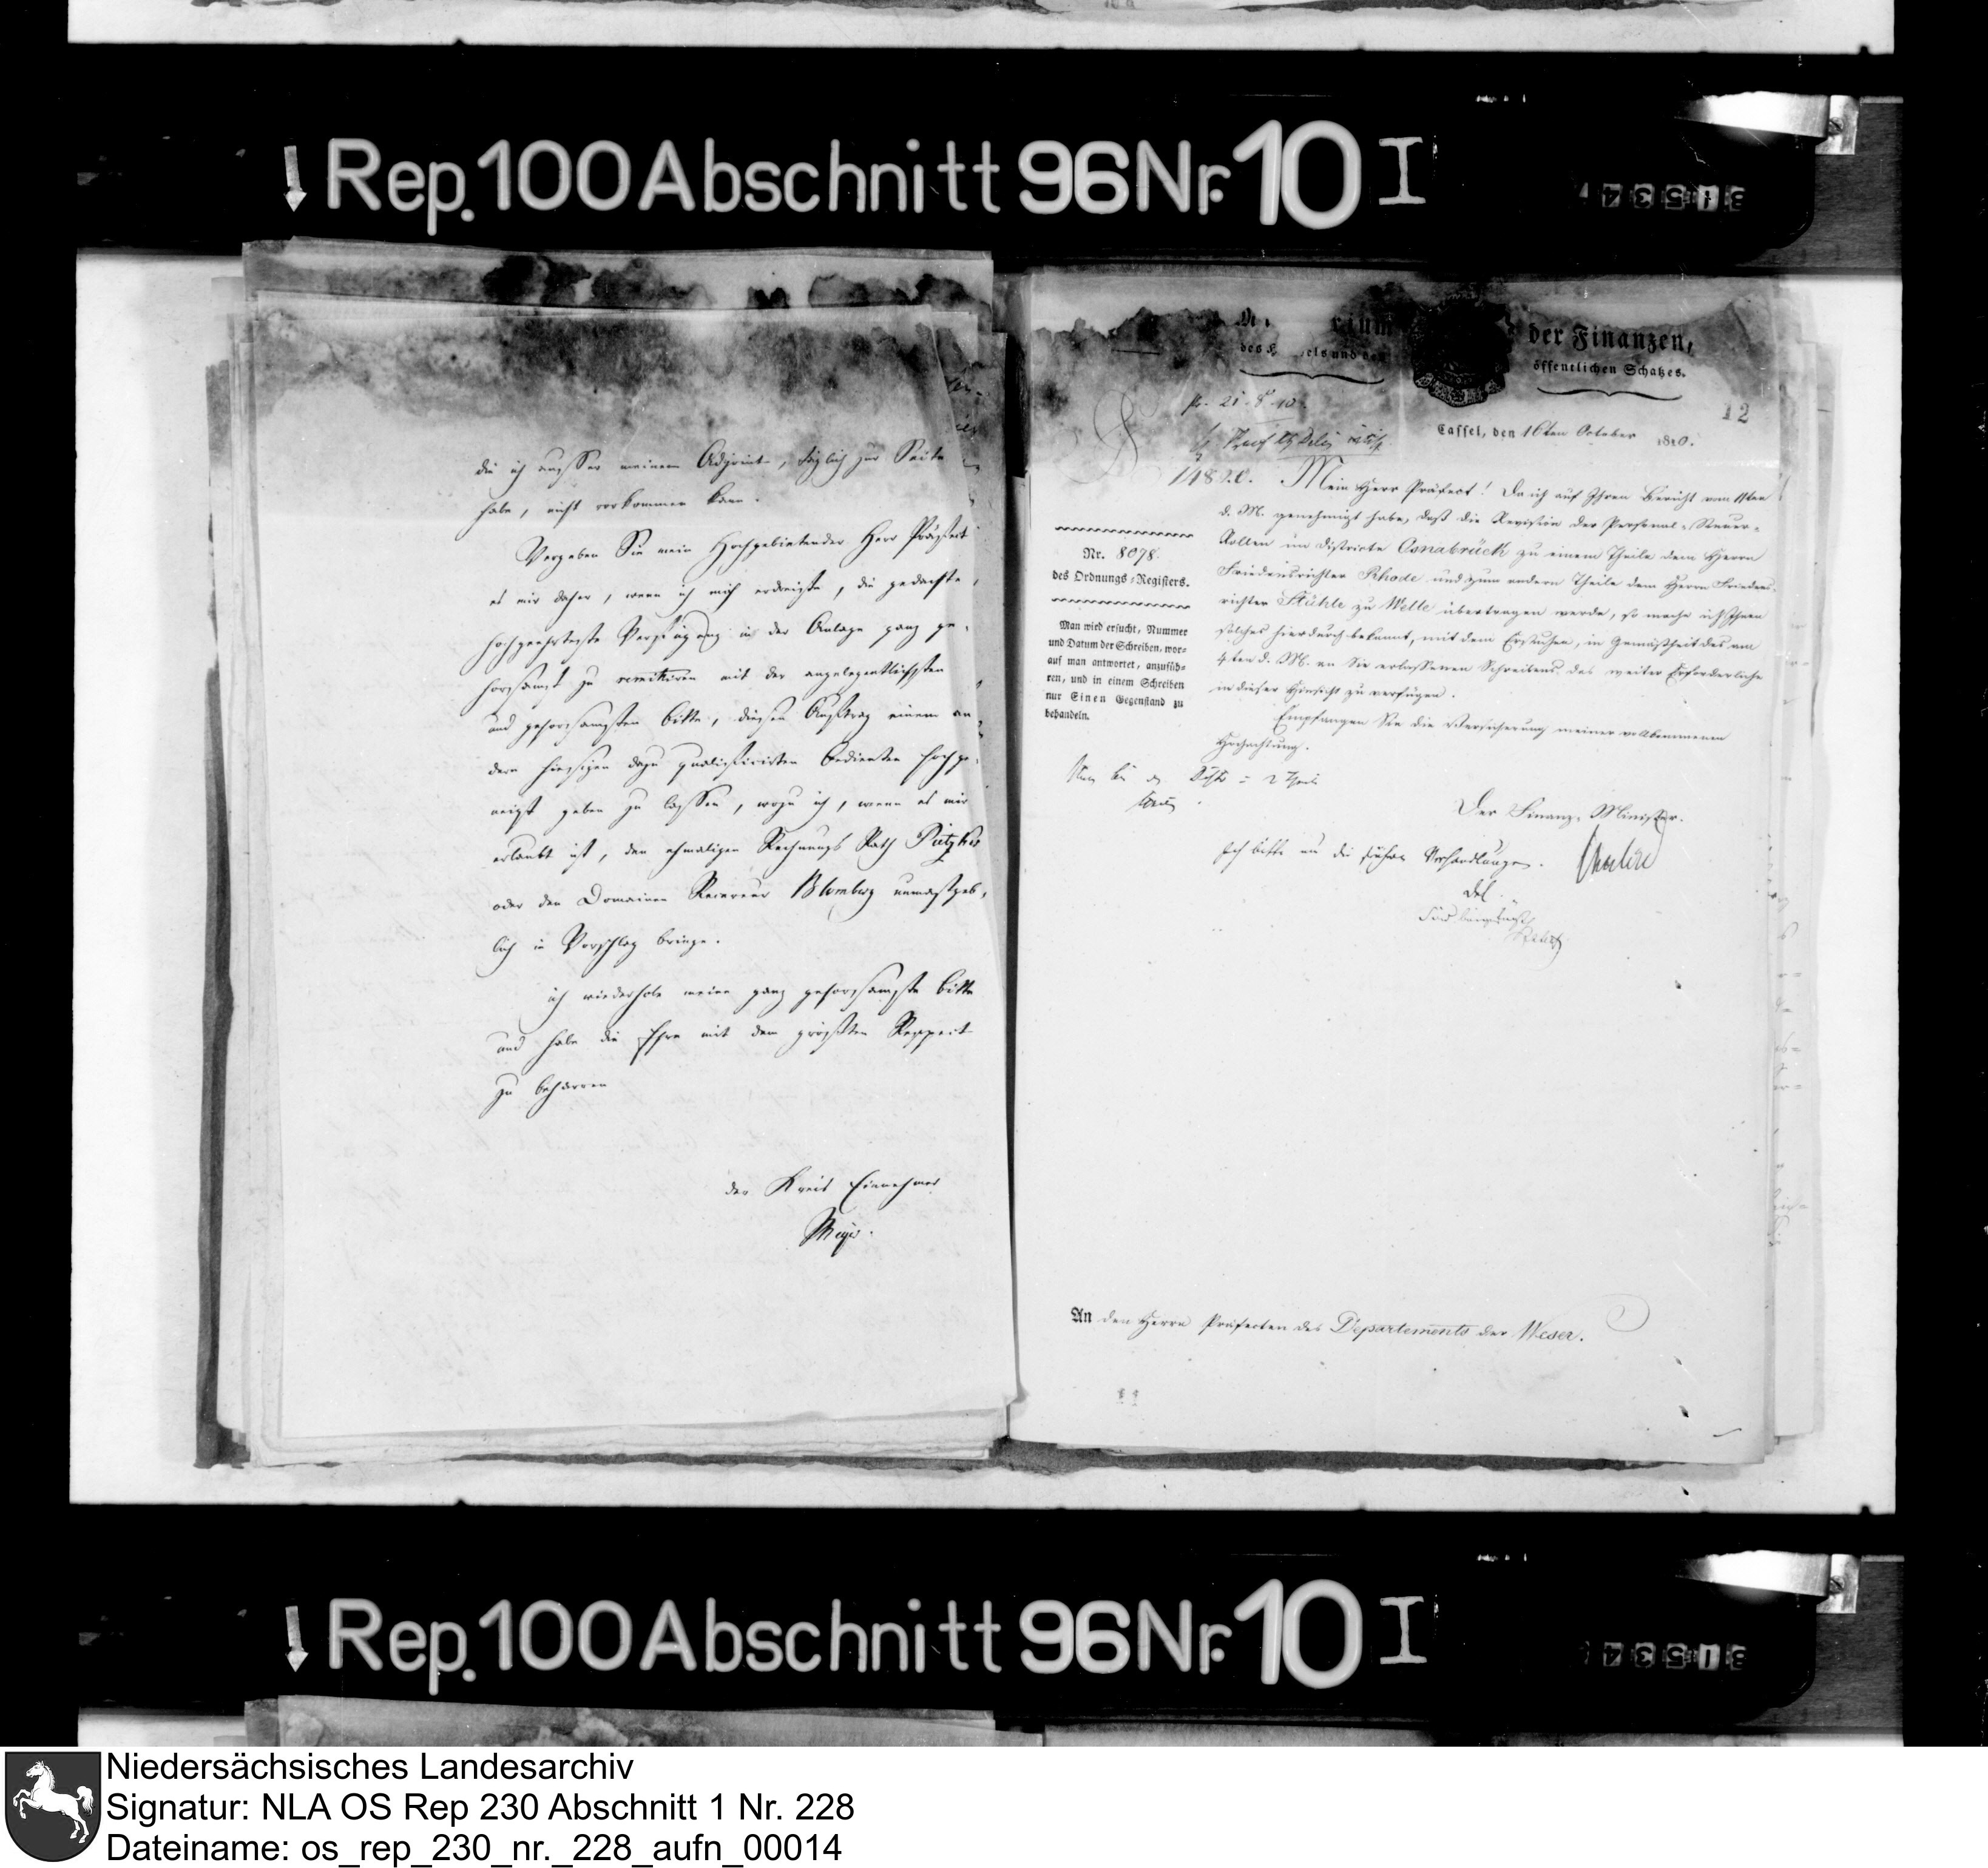 Rep. 100 Abschnitt 96 Nr. 10 I
31534
die ich ausser meinem Adjoint, täglich zur Seite
habe, nicht vorkommen kann.
Vergeben Sie mein Hochgebietender Herr Präfect
es mir daher, wenn ich mich erdreiste, die gedachte,
hochgeehrteste Verfügung in der Anlage ganz ge-
horsamst zu remittiren mit der angelegentlichsten
und gehorsamsten Bitte, diesen Auftrag einem an
dern hiesigen dazu qualificirten Bedienten hochge-
neigt geben zu lassen, wozu ich, wenn es mir
erlaubt ist, den ehmaligen Rechnungs Rath
oder den Domainen Receveur Blomberg unmaßgeb-
lich in Vorschlag bringe.
ich wiederhole meine ganz gehorsamste Bitte
und habe die Ehre mit dem größten Respect
zu beharren
der Kreis Einnehmer
Meyer.
der Finanzen,
des
öffentlichen Schatzes.
12
Cassel, den 16ten October 1810.
14820. Mein Herr Präfect! Da ich auf Ihren Bericht vom 11ten
d. M. genehmigt habe, daß die Revision der Personal-Steuer-
Rollen im Districte Osnabrück zu einem Theile dem Herrn
Friedensrichter Rhode und zum andern Theile dem Herrn Friedens-
richter Stühle zu Melle übertragen werde, so mache ich Ihnen
solches hierdurch bekannt, mit dem Ersuchen, in Gemäßheit des am
4ten d. M. an Sie erlassenen Schreibens das weiter Erforderliche
in dieser Hinsicht zu verfügen.
Empfangen Sie die Versicherung meiner vollkommenen
Hochachtung.
Nr. 8078.
des Ordnungs-Registers.
Man wird ersucht, Nummer
und Datum der Schreiben, wor-
auf man antwortet, anzufüh-
ren, und in einem Schreiben
nur Einen Gegenstand zu
behandeln.
Der Finanz-Minister.
Ich bitte um die frühern Verhandlungen.
Del.
An den Herrn Präfecten des Departements der Weser.
Rep. 100 Abschnitt 96 Nr. 10 I
31534
Niedersächsisches Landesarchiv
Signatur: NLA OS Rep 230 Abschnitt 1 Nr. 228
Dateiname: os_rep_230_nr._228_aufn_00014